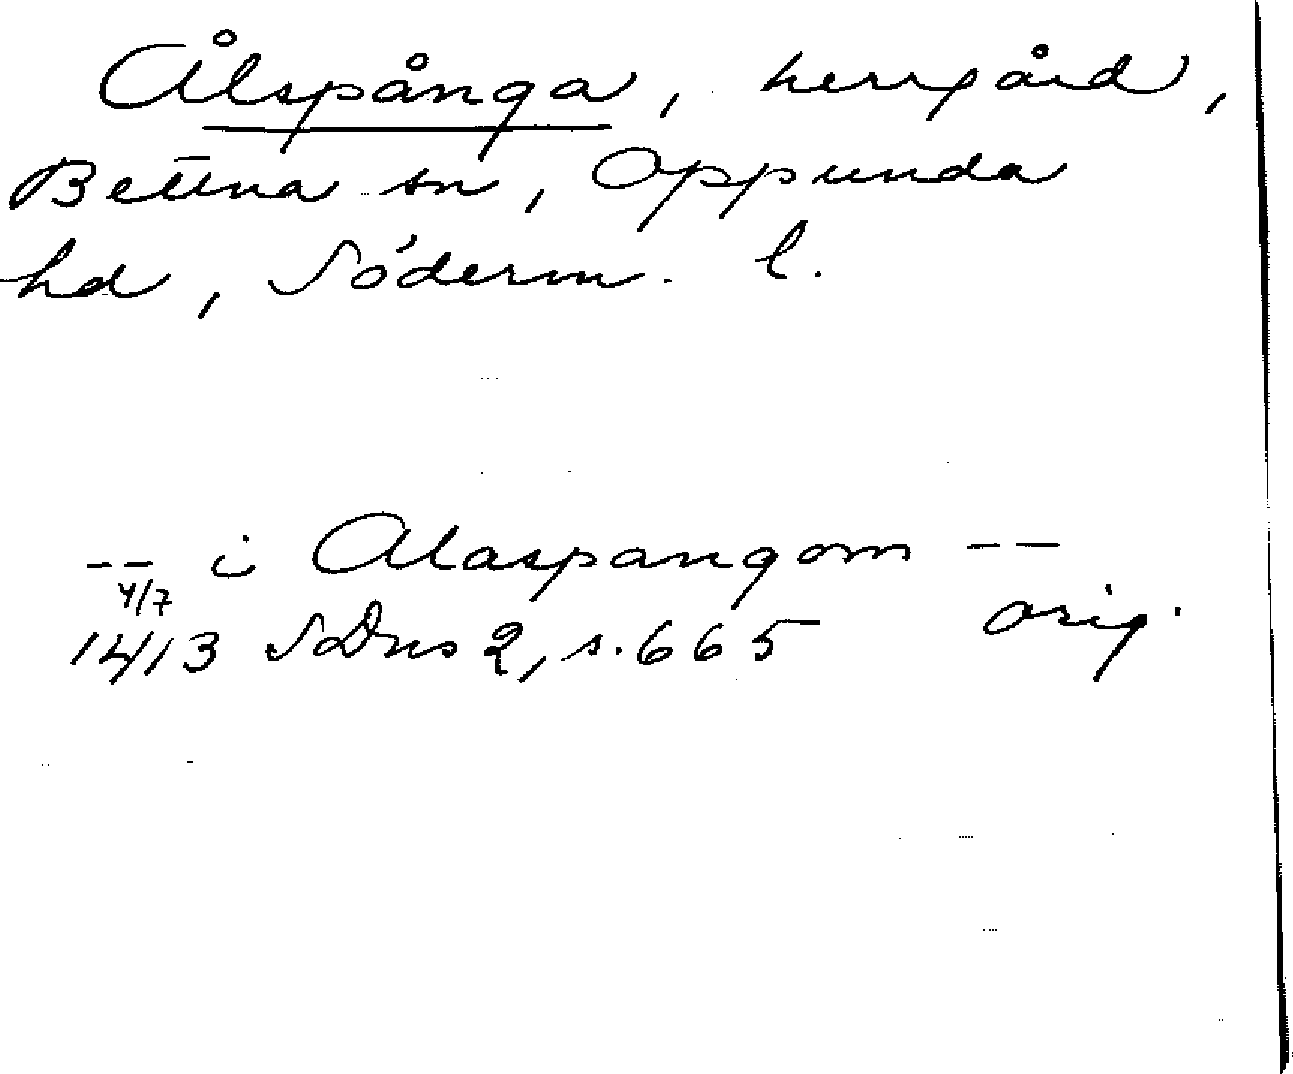 Ålspånga, herrgård,
Bettna sn, Oppunda
hd, Söderm. l.
-- i Alaspangom --
4/7
1413 SDns 2, s. 665 orig.